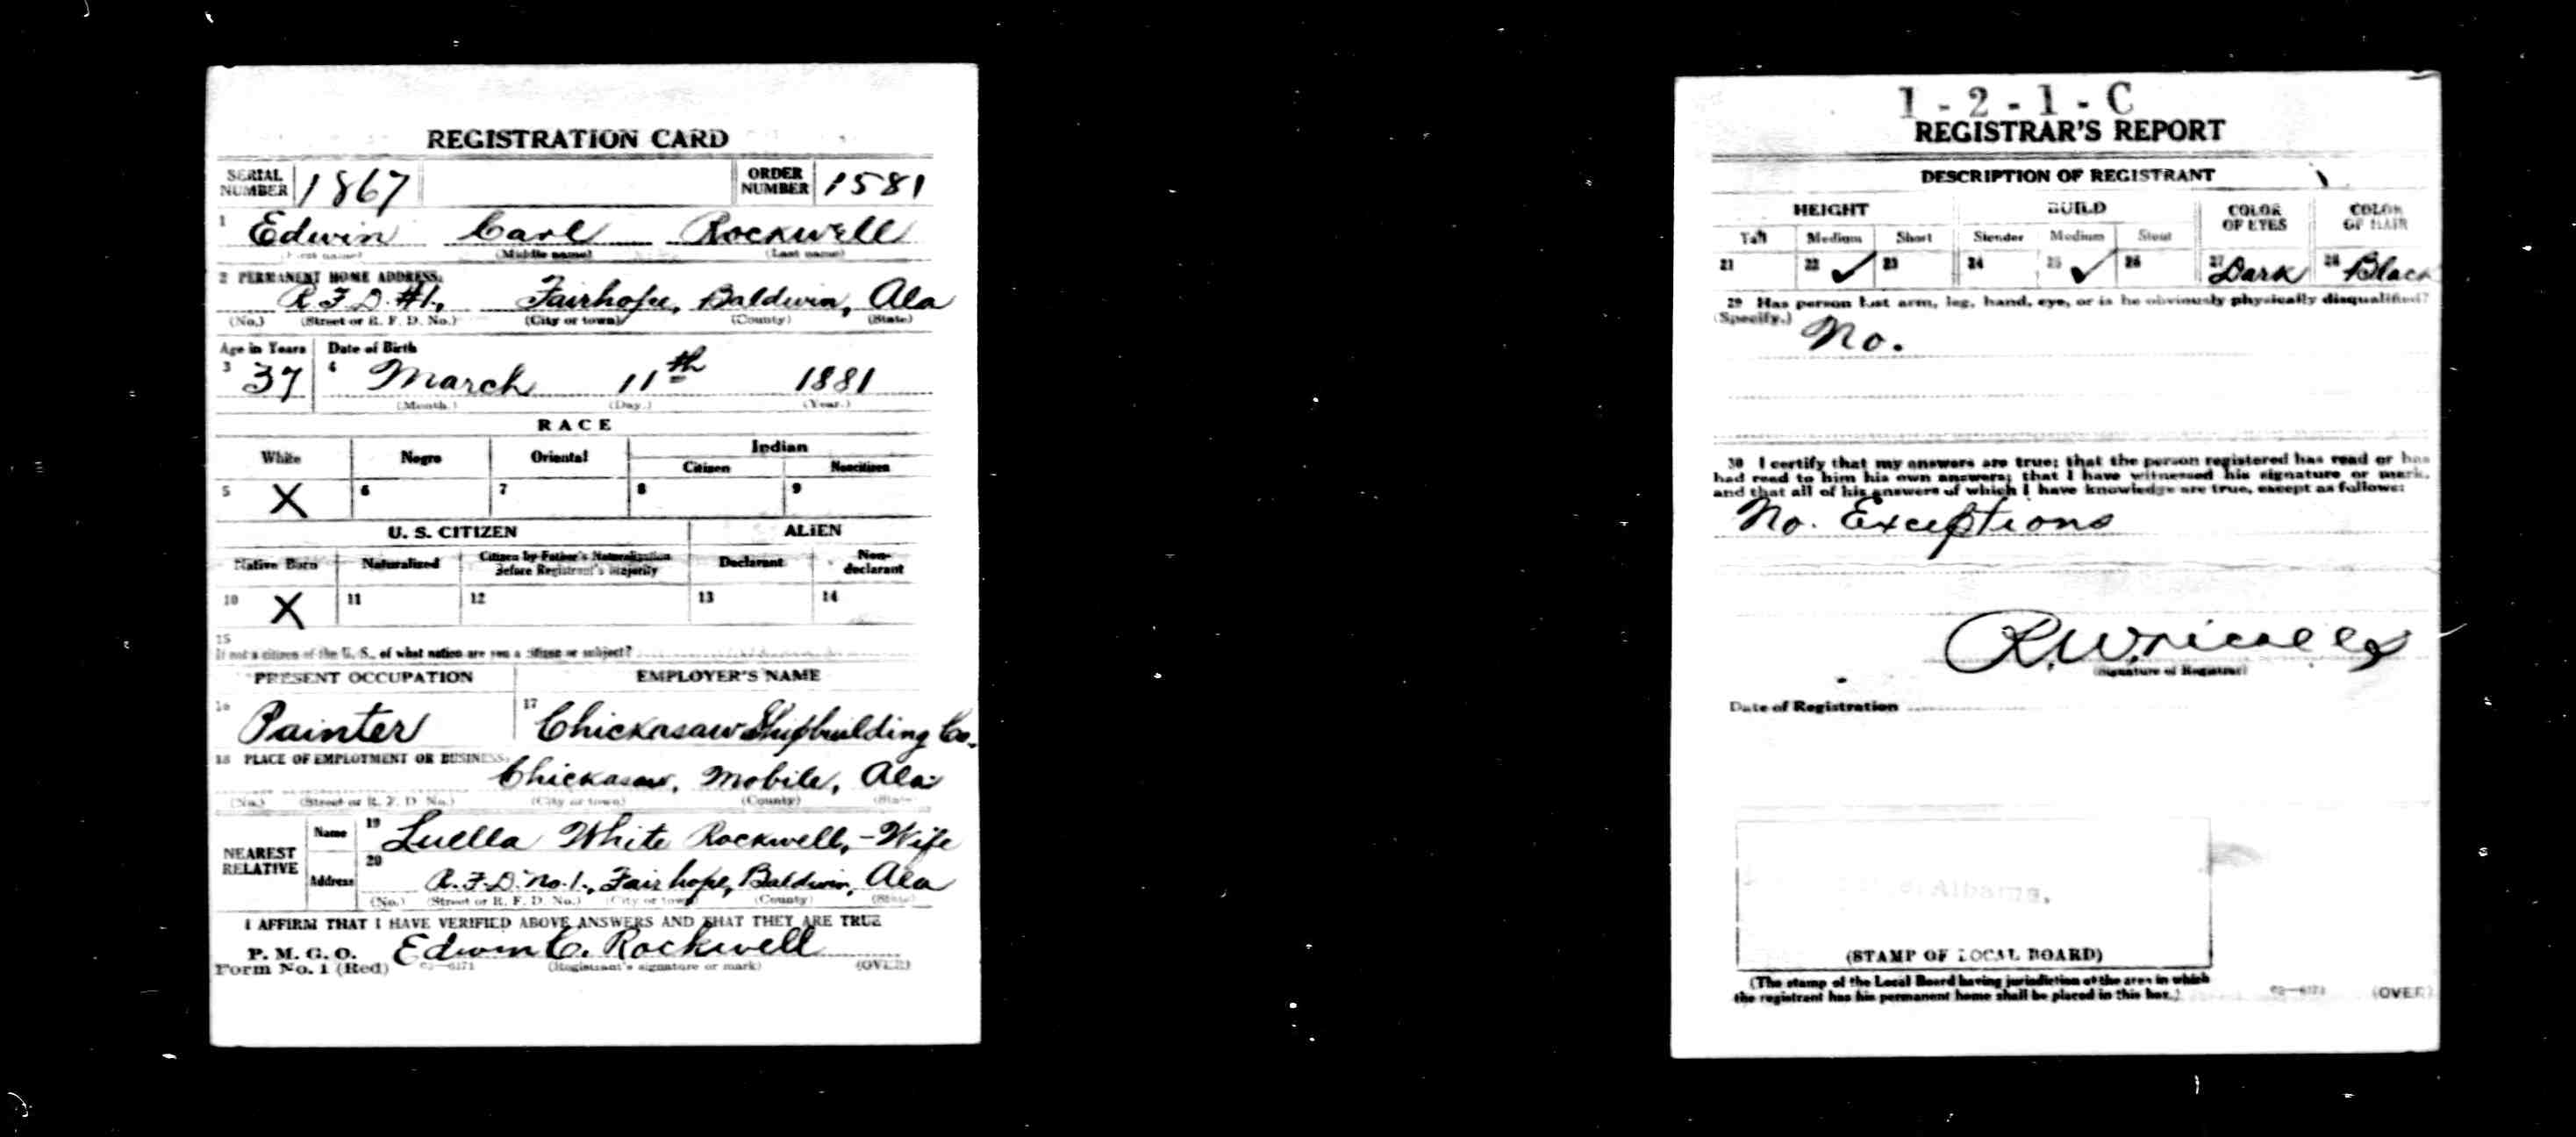 REGISTRATION CARD
SERIAL NUMBER 1867 ORDER NUMBER 1581
1 Edwin Carl Rockwell
(First name) (Middle name) (Last name)
2 PERMANENT HOME ADDRESS:
R F D #1, Fairhope, Baldwin, Ala
(No.) (Street or R. F. D. No.) (City or town) (County) (State)
Age in Years Date of Birth
3 37 4 March 11th 1881
(Month.) (Day.) (Year.)
RACE
White Negro Oriental Indian
Citizen Noncitizen
5 X 6 7 8 9
U. S. CITIZEN ALIEN
Native Born Naturalized Citizen by Father's Naturalization Before Registrant's Majority Declarant Non-declarant
10 X 11 12 13 14
15
If not a citizen of the U. S., of what nation are you a citizen or subject?
PRESENT OCCUPATION EMPLOYER'S NAME
16 Painter 17 Chickasaw Shipbuilding Co.
18 PLACE OF EMPLOYMENT OR BUSINESS:
Chickasaw, Mobile, Ala
(No.) (Street or R. F. D. No.) (City or town) (County) (State)
NEAREST RELATIVE
Name 19 Luella White Rockwell, - Wife
Address 20 R.F.D. No. 1., Fairhope, Baldwin, Ala
(No.) (Street or R. F. D. No.) (City or town) (County) (State)
I AFFIRM THAT I HAVE VERIFIED ABOVE ANSWERS AND THAT THEY ARE TRUE
P. M. G. O.
Form No. 1 (Red) Edwin C. Rockwell
(Registrant's signature or mark) (OVER)
1-2-1-C
REGISTRAR'S REPORT
DESCRIPTION OF REGISTRANT
HEIGHT BUILD COLOR OF EYES COLOR OF HAIR
Tall Medium Short Slender Medium Stout
21 22 ✓ 23 24 25 ✓ 26 27 Dark 28 Black
29 Has person lost arm, leg, hand, eye, or is he obviously physically disqualified?
(Specify.) No.
30 I certify that my answers are true; that the person registered has read or has
had read to him his own answers; that I have witnessed his signature or mark,
and that all of his answers of which I have knowledge are true, except as follows:
No. Exceptions
(Signature of Registrar)
Date of Registration
(STAMP OF LOCAL BOARD)
(The stamp of the Local Board having jurisdiction of the area in which
the registrant has his permanent home shall be placed in this box.)
(OVER)